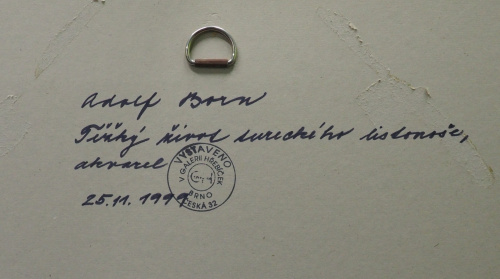 Adolf Born
Těžký život tureckého listonoše,
akvarel
25.11.1999
VYSTAVENO
V GALERII HŘEBÍČEK
BRNO
ČESKÁ 32